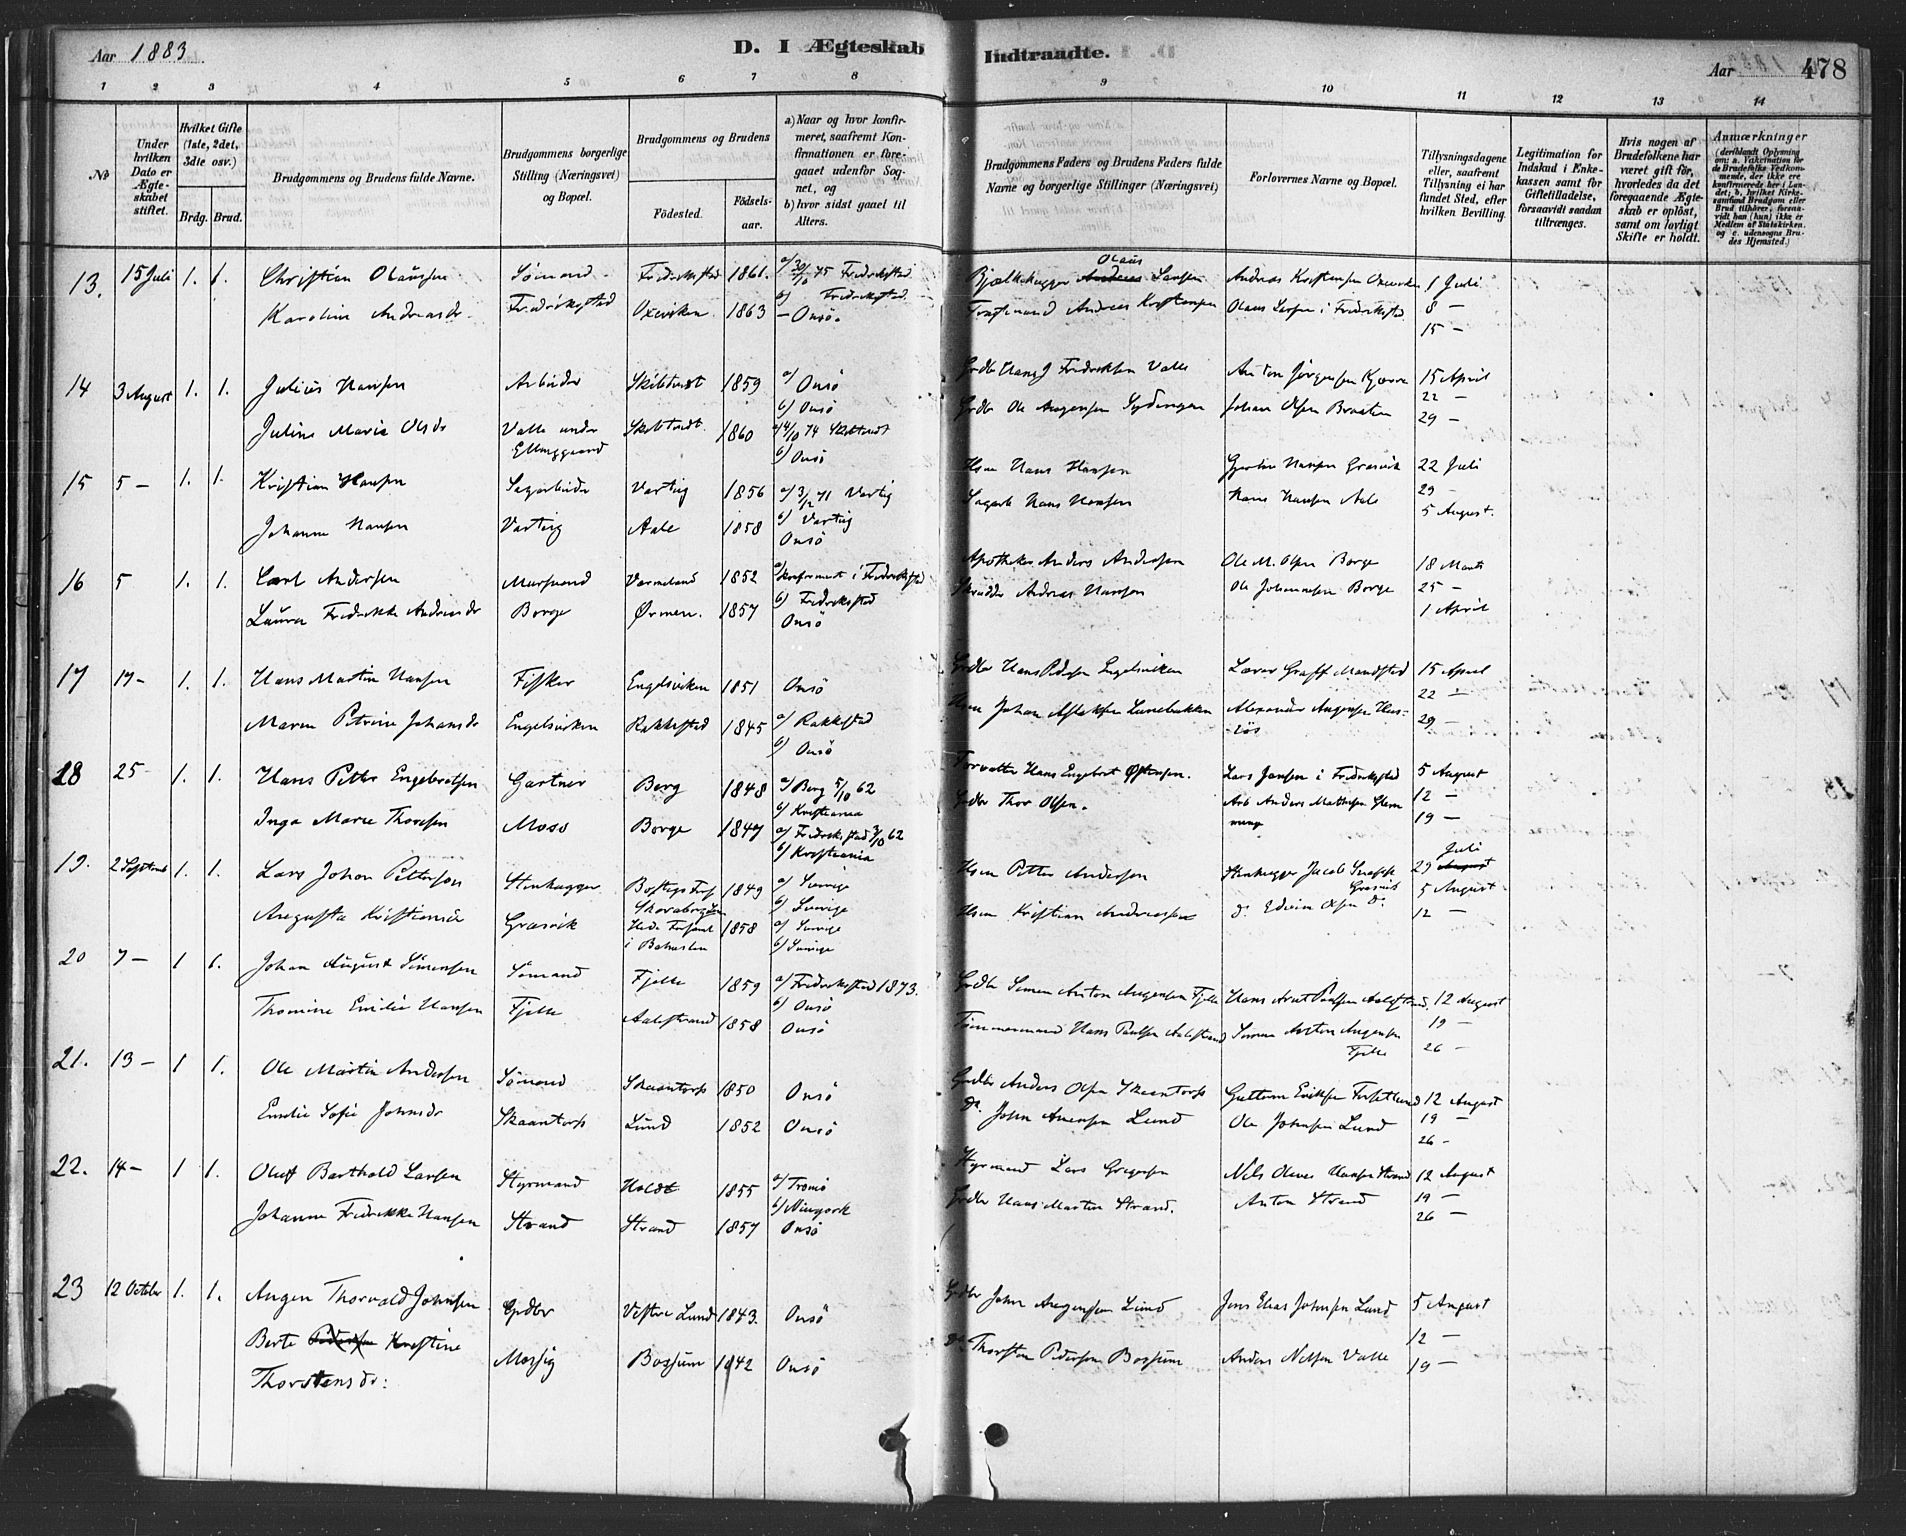 Aar 1883
D. I Ægteskab Indtraadte.
Aar 478
1 2 3 4 5 6 7 8 9 10 11 12 13 14
No
Under hvilken Dato er Ægteskabet stiftet.
Hvilket Gifte (1ste, 2det, 3die osv.)
Brdg. Brud.
Brudgommens og Brudens fulde Navne.
Brudgommens borgerlige Stilling (Næringsvei) og Bopæl.
Brudgommens og Brudens
Födested. Födsels-aar.
a.) Naar og hvor konfirmeret, saafremt Konfirmationen er foregaaet udenfor Sognet, og
b.) hvor sidst gaaet til Alters.
Brudgommens Faders og Brudens Faders fulde Navne og borgerlige Stillinger (Næringsvei)
Forlovernes Navne og Bopæl.
Tillysningsdagene eller, saafremt Tillysning ei har fundet Sted, efter hvilken Bevilling.
Legitimation for Indskud i Enkekassen samt for Giftetilladelse, forsaavidt saadan tiltrænges.
Hvis nogen af Brudefolkene har været gift før, hvorledes da det foregaaende Ægteskab er oplöst, samt om lovligt Skifte er holdt.
Anmærkninger
13. 15 Juli 1. 1. Christian Olaussen Sømand Fredrikstad 1861. a/ 75 Fredrikstad Bjælkehugger Olaus Larsen Andreas Kristensen 1 Juli
Karoline Andreasdr. Fredrikstad Oxeviken 1863 b/ Fredrikstad. — Onsö. Andreas Kristensen Olaus Larsen i Fredrikstad 8 —
15 —
14 3 August 1. 1. Julius Hansen Arbeider Skibtvet 1859 a/ Onsö b/ Onsö Fredriksen Valle Anton Jørgensen 15 April
22 —
Juline Marie Olsdr Valle under Elinggaard Skibtvedt 1860 74 Skibtvedt b/ Onsö Grdbr Ole Johan Olsen Braaten 29 —
15 5 — 1. 1. Kristian Hansen Sagarbeider Varteig 1856 a/ 71 Varteig b/ Varteig Hsm Hans Hansen Hansen Græsvik 22 Juli
29 —
Johanne Hansen Varteig Aale 1858 Onsö Sagarb Hans Hansen Hans Hansen Aale 5 August.
16 5 1. 1. Carl Andersen Murmand Varmeland 1852 a/ konfirmert i Fredrikstad b/ Fredrikstad Apotheker Anders Andersen Ole M. Olsen Borge 18 Marts
25 —
Laura Fredrikke Andreasdr Borge Ørmen. 1857 Onsö Skrædder Andreas Hansen Ole Johannesen Borge 1 April
17 17 — 1. 1. Hans Martin Hansen Fisker Engelsviken 1851 Onsö Grdbr Hans Pedersen Engelsviken Lærer Graff 15 April
22 —
Maren Petrine Johansdr Engelsviken Rakkestad 1845 a/ Rakkestad b/ Onsö Hsm Johan Aslaksen Alexander Augensen 29 —
18 25 — 1. 1. Hans Petter Engebretsen Gartner Berg 1848 a/ Berg 5/10 62 b/ Kristiania Forvalter Hans Engebret Østensen. Lars Jansen i Fredrikstad 5 August
12 —
Inga Marie Thoresen Moss Borge 1847 a/ Fredrikstad 62 b/ Kristiania Grdbr Thor Olsen. Arb Anders Mathisen Glemminge 19 —
19. 2 Septemb 1. 1. Lars Johan Petterson Stenhugger 1849 a/ Sverige b/ Sverige Hsm Petter Andersen Stenhugger Jacob Græsvik 29 Juli
5 August
Augusta Kristiansdr Græsvik Hede i Bahuslen 1858 a/ Sverige b/ Sverige Hsm Kristian Andreassen do. Edvin Olsen do. 12 —
20 7 — 1 1. Johan August Simensen Sømand Fjelle 1859 a/ Fredrikstad 1873. b/ Onsö Grdbr Simen Anton Augensen Fjelle Hans Arnt Paulsen Aalestrand. 12 August
19 —
Thomine Emilie Hansen Fjelle Aalestrand 1858 Onsö Tømmermand Hans Paulsen Aalestrand Simen Anton Augensen Fjelle 26 —
21. 13 — 1 1. Ole Martin Andersen Sømand Skaantorp 1850 Onsö Grdbr Anders Olsen Skaantorp Guttorm Eriksen 12 August
19 —
Emilie Sofie Johnsdr Skaantorp Lund 1852 Onsö do. John Lund Ole Johnsen Lund 26 —
22. 14 — 1 1. Oluf Barthold Larsen Styrmand Holdt 1855 a/ Tromö b/ Niuyork Styrmand Lars Gregersen Nils Oliver Hansen Strand 12 August
19 —
Johanne Fredrikke Hansen Strand Strand 1857 Onsö Grdbr Hans Martin Strand. Anton Strand 26 —
23 12 October 1. 1. Augen Thorvald Johnsen Grdbr Vestre Lund 1843. Onsö Grdbr John Augensen Lund Jens Elias Johnsen Lund 5 August
12 —
Berte Kristine Thorstensdr: Mossig Bossum 1842 Onsö do. Thorsten Pedersen Bossum Anders Nilsen Valle 19 —